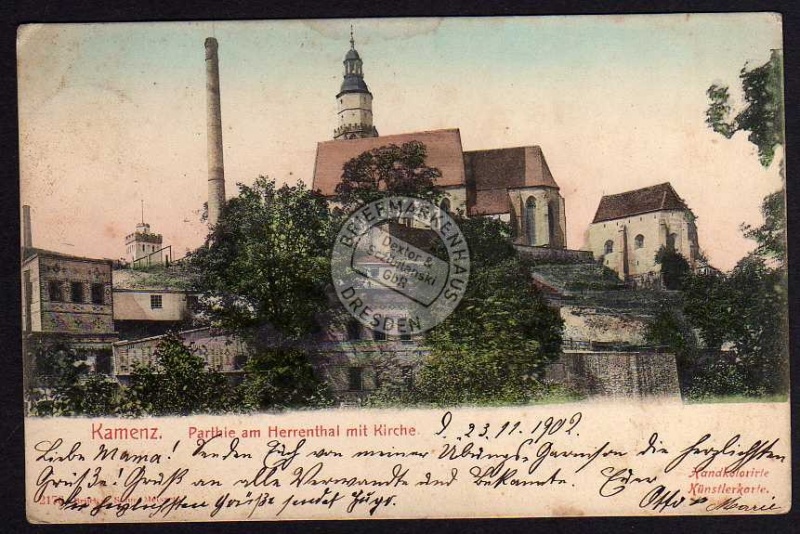 BRIEFMARKENHAUS
Dexler &
GbR
DRESDEN
Kamenz. Parthie am Herrenthal mit Kirche. 23.11.1902
Liebe Mama! Senden Dir von meiner Übungs-Garnison die herzlichsten
Grüße! Gruß an alle Verwandte und Bekannte. Euer
Handkolorirte
Künstlerkarte.
herzlichsten Grüße sendet Hugo. Otto Marie